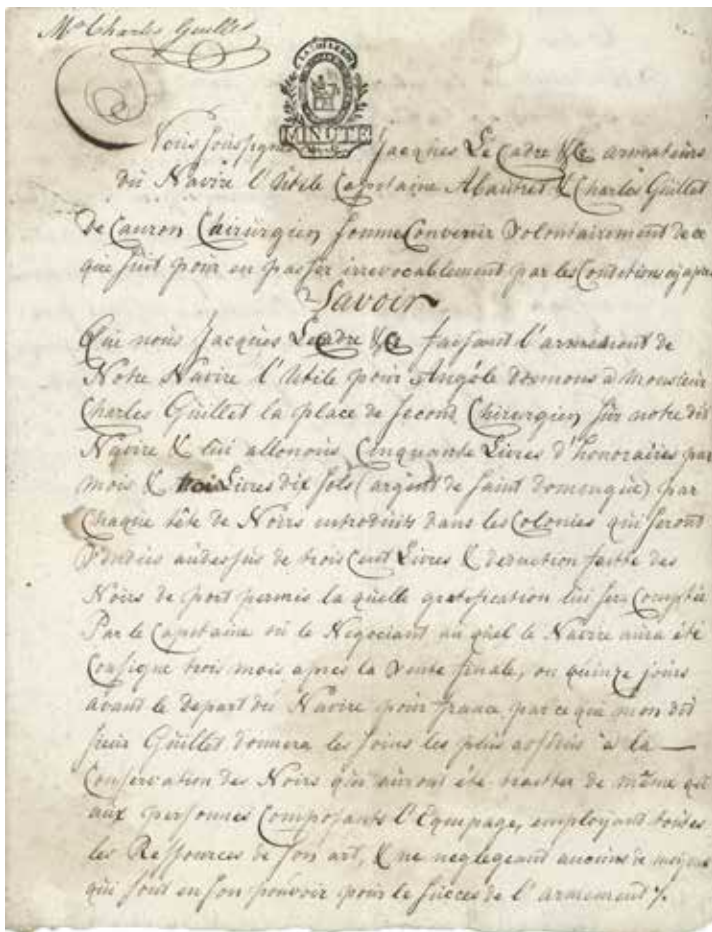 Mr Charles Guillet
MINUTE
Nous soussignés Jacques Le Cadre & Ce armateurs
du Navire l'Utile Capitaine Alautret & Charles Guillet
De Cauron Chirurgien somme Convenir Volontairement de ce
qui suit pour en passer irrevocablement par les Conditions cy apres
Savoir
Que nous Jacques Le Cadre & Ce faisant l'armement de
Notre Navire l'Utile pour Angole donnons a Monsieur
Charles Guillet la place de second Chirurgien sur notre dit
Navire & lui allouons Cinquante Livres d'honoraires par
mois & trois Livres dix sols (argent de saint domengue) par
Chaque tête de Noirs introduits dans les Colonies qui seront
Vendües audessus de trois Cent Livres & deduction faitte des
Noirs de port permis la quelle gratification lui sera Comptée
Par le Capitaine ou le Negociant au quel le Navire aura été
Consigné trois mois apres la Vente finale, ou quinze jours
avant le depart du Navire pour france par ce que mon dit
sieur Guillet donnera les soins les plus assidus a la
Conservation des Noirs qui auront été traitter de même que
aux personnes Composants l'Equipage, employant toutes
les Ressources de son art, & ne negligeant aucuns de moyens
qui sont en son pouvoir pour le succes de l'armement